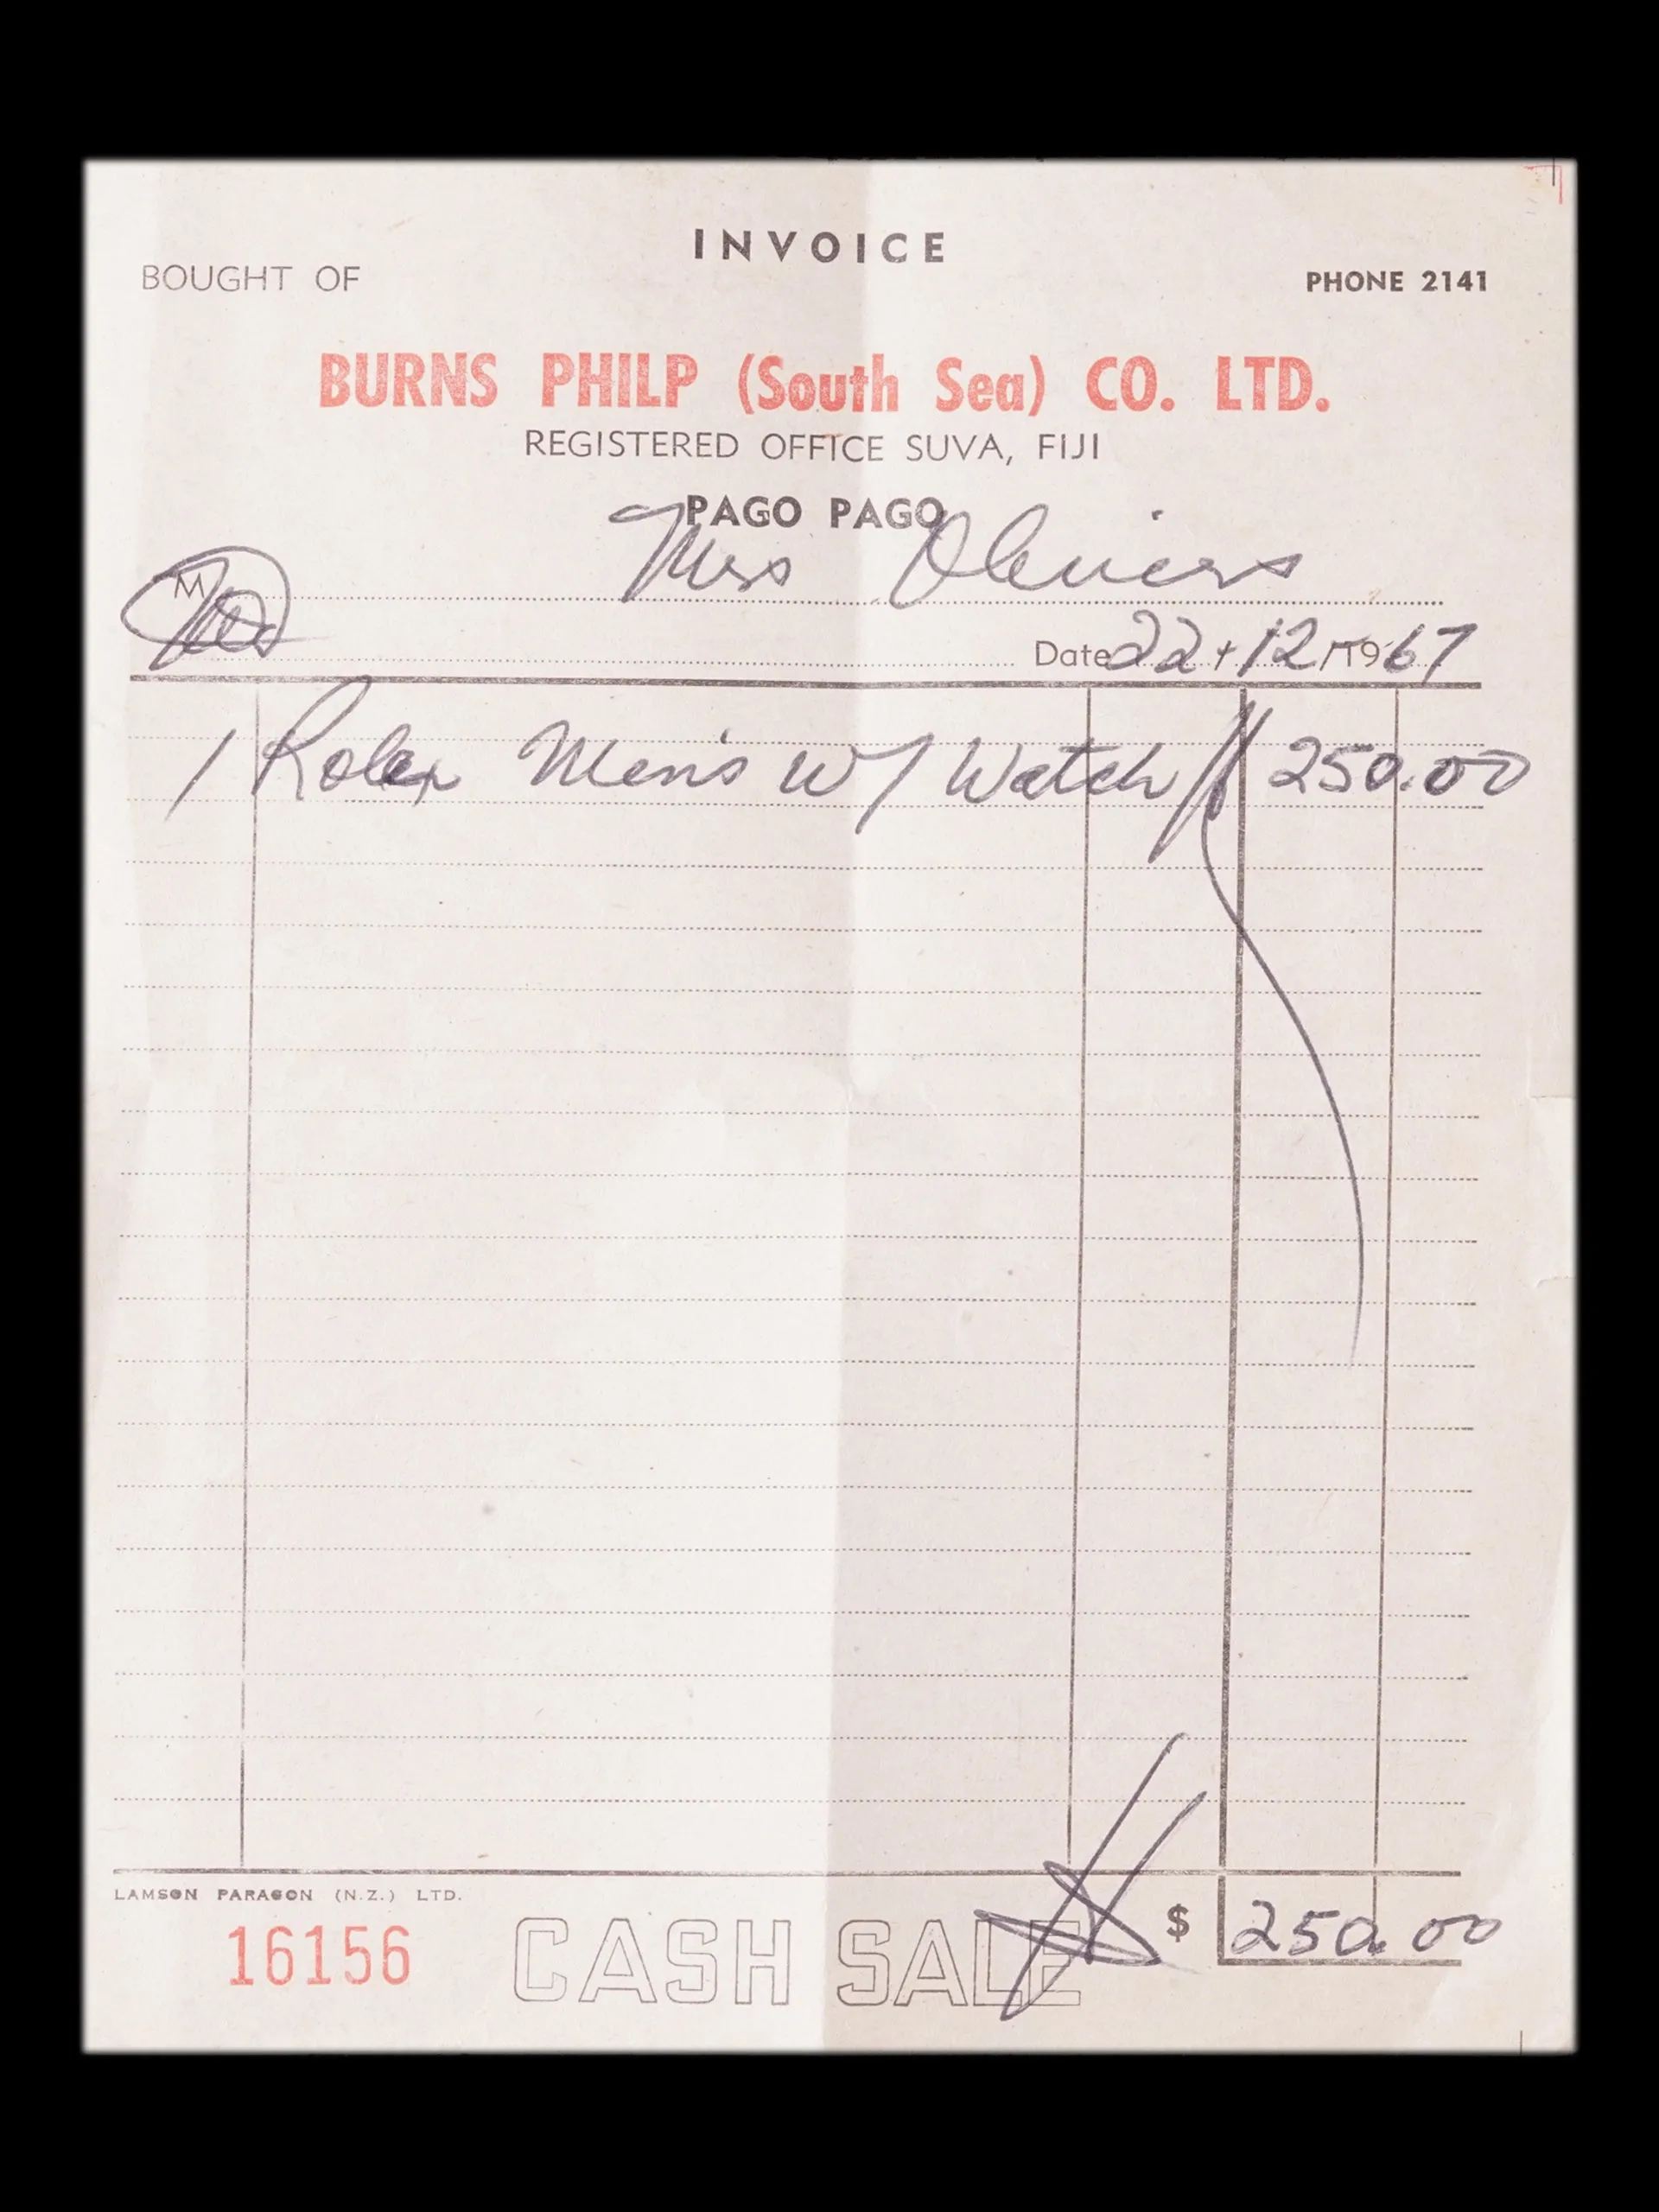 INVOICE
BOUGHT OF
PHONE 2141
BURNS PHILP (South Sea) CO. LTD.
REGISTERED OFFICE SUVA, FIJI
PAGO PAGO
M Miss
Date 22/12/1967
1 Rolex Men's W/Watch $ 250.00
LAMSON PARAGON (N.Z.) LTD.
16156 CASH SALE $ 250.00